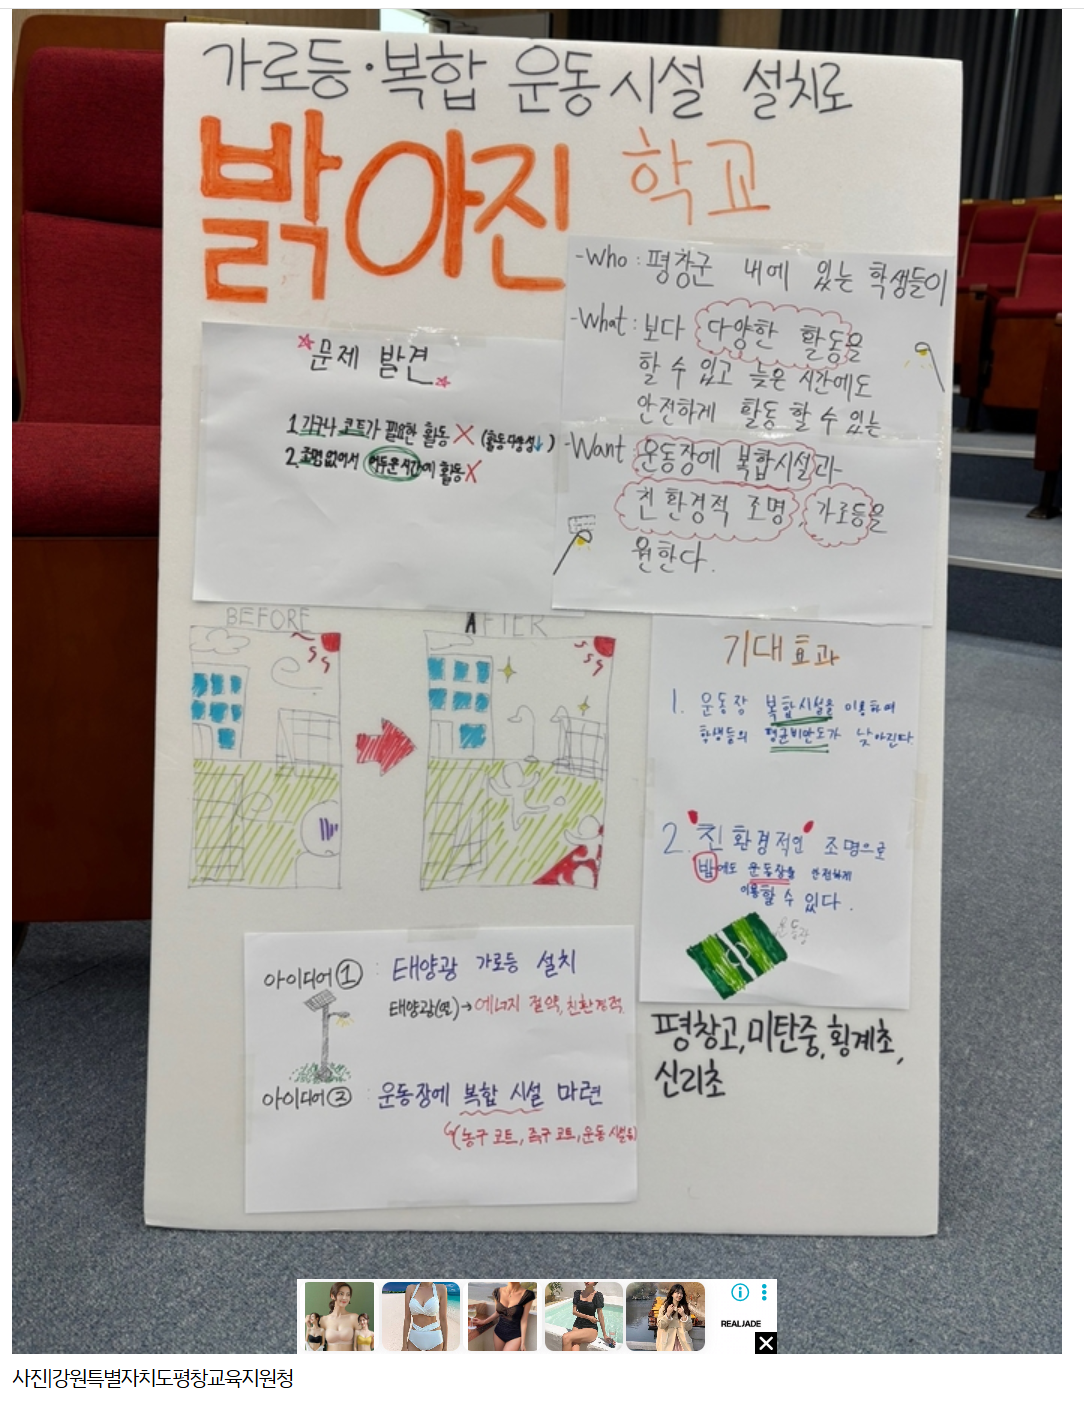 가로등·복합 운동시설 설치로
밝아진 학교
-Who : 평창군 내에 있는 학생들이
-What : 보다 다양한 활동을
할 수 있고 늦은 시간에도
안전하게 활동 할 수 있는
-Want : 운동장에 복합시설과
친환경적 조명, 가로등을
원한다.
문제 발견
1. 기구나 코트가 필요한 활동 X (활동 다양성↓)
2. 조명 없어서 어두운 시간에 활동 X
BEFORE
AFTER
기대효과
1. 운동장 복합시설을 이용하며
학생들의 평균비만도가 낮아진다.
2. 친환경적인 조명으로
밤에도 운동장을 안전하게
이용할 수 있다.
운동장
아이디어① : 태양광 가로등 설치
태양광(면)→에너지 절약, 친환경적
아이디어② 운동장에 복합 시설 마련
(농구 코트, 족구 코트, 운동 시설 등)
평창고, 미탄중, 횡계초,
신리초
REALJADE
사진|강원특별자치도평창교육지원청